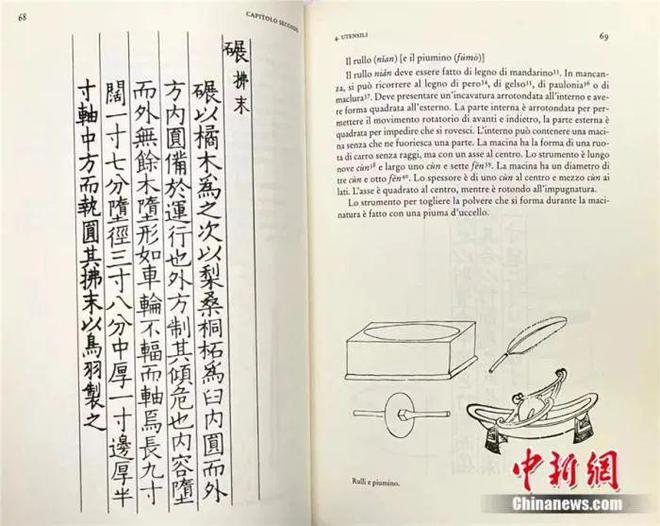 68
CAPITOLO SECONDO
碾 拂末
碾以橘木為之次以梨桑桐柘為臼内圓而外
方内圓備於運行也外方制其傾危也内容墮
而外無餘木墮形如車輪不輻而軸焉長九寸
闊一寸七分墮徑三寸八分中厚一寸邊厚半
寸軸中方而執圓其拂末以鳥羽製之
4. UTENSILI
69
Il rullo (nian) [e il piumino (fúmò)]
Il rullo niǎn deve essere fatto di legno di mandarino³³. In mancan-
za, si può ricorrere al legno di pero³⁴, di gelso³⁵, di paulonia³⁶ o di
maclura³⁷. Deve presentare un'incavatura arrotondata all'interno e ave-
re forma quadrata all'esterno. La parte interna è arrotondata per per-
mettere il movimento rotatorio di avanti e indietro, la parte esterna è
quadrata per impedire che si rovesci. L'interno può contenere una maci-
na senza che ne fuoriesca una parte. La macina ha la forma di una ruo-
ta di carro senza raggi, ma con un asse al centro. Lo strumento è lungo
nove cùn³⁸ e largo uno cùn e sette fēn³⁹. La macina ha un diametro di
tre cùn e otto fēn⁴⁰. Lo spessore è di uno cùn al centro e mezzo cùn ai
lati. L'asse è quadrato al centro, mentre è rotondo all'impugnatura.
Lo strumento per togliere la polvere che si forma durante la maci-
natura è fatto con una piuma d'uccello.
Rulli e piumino.
中新網
Chinanews.com